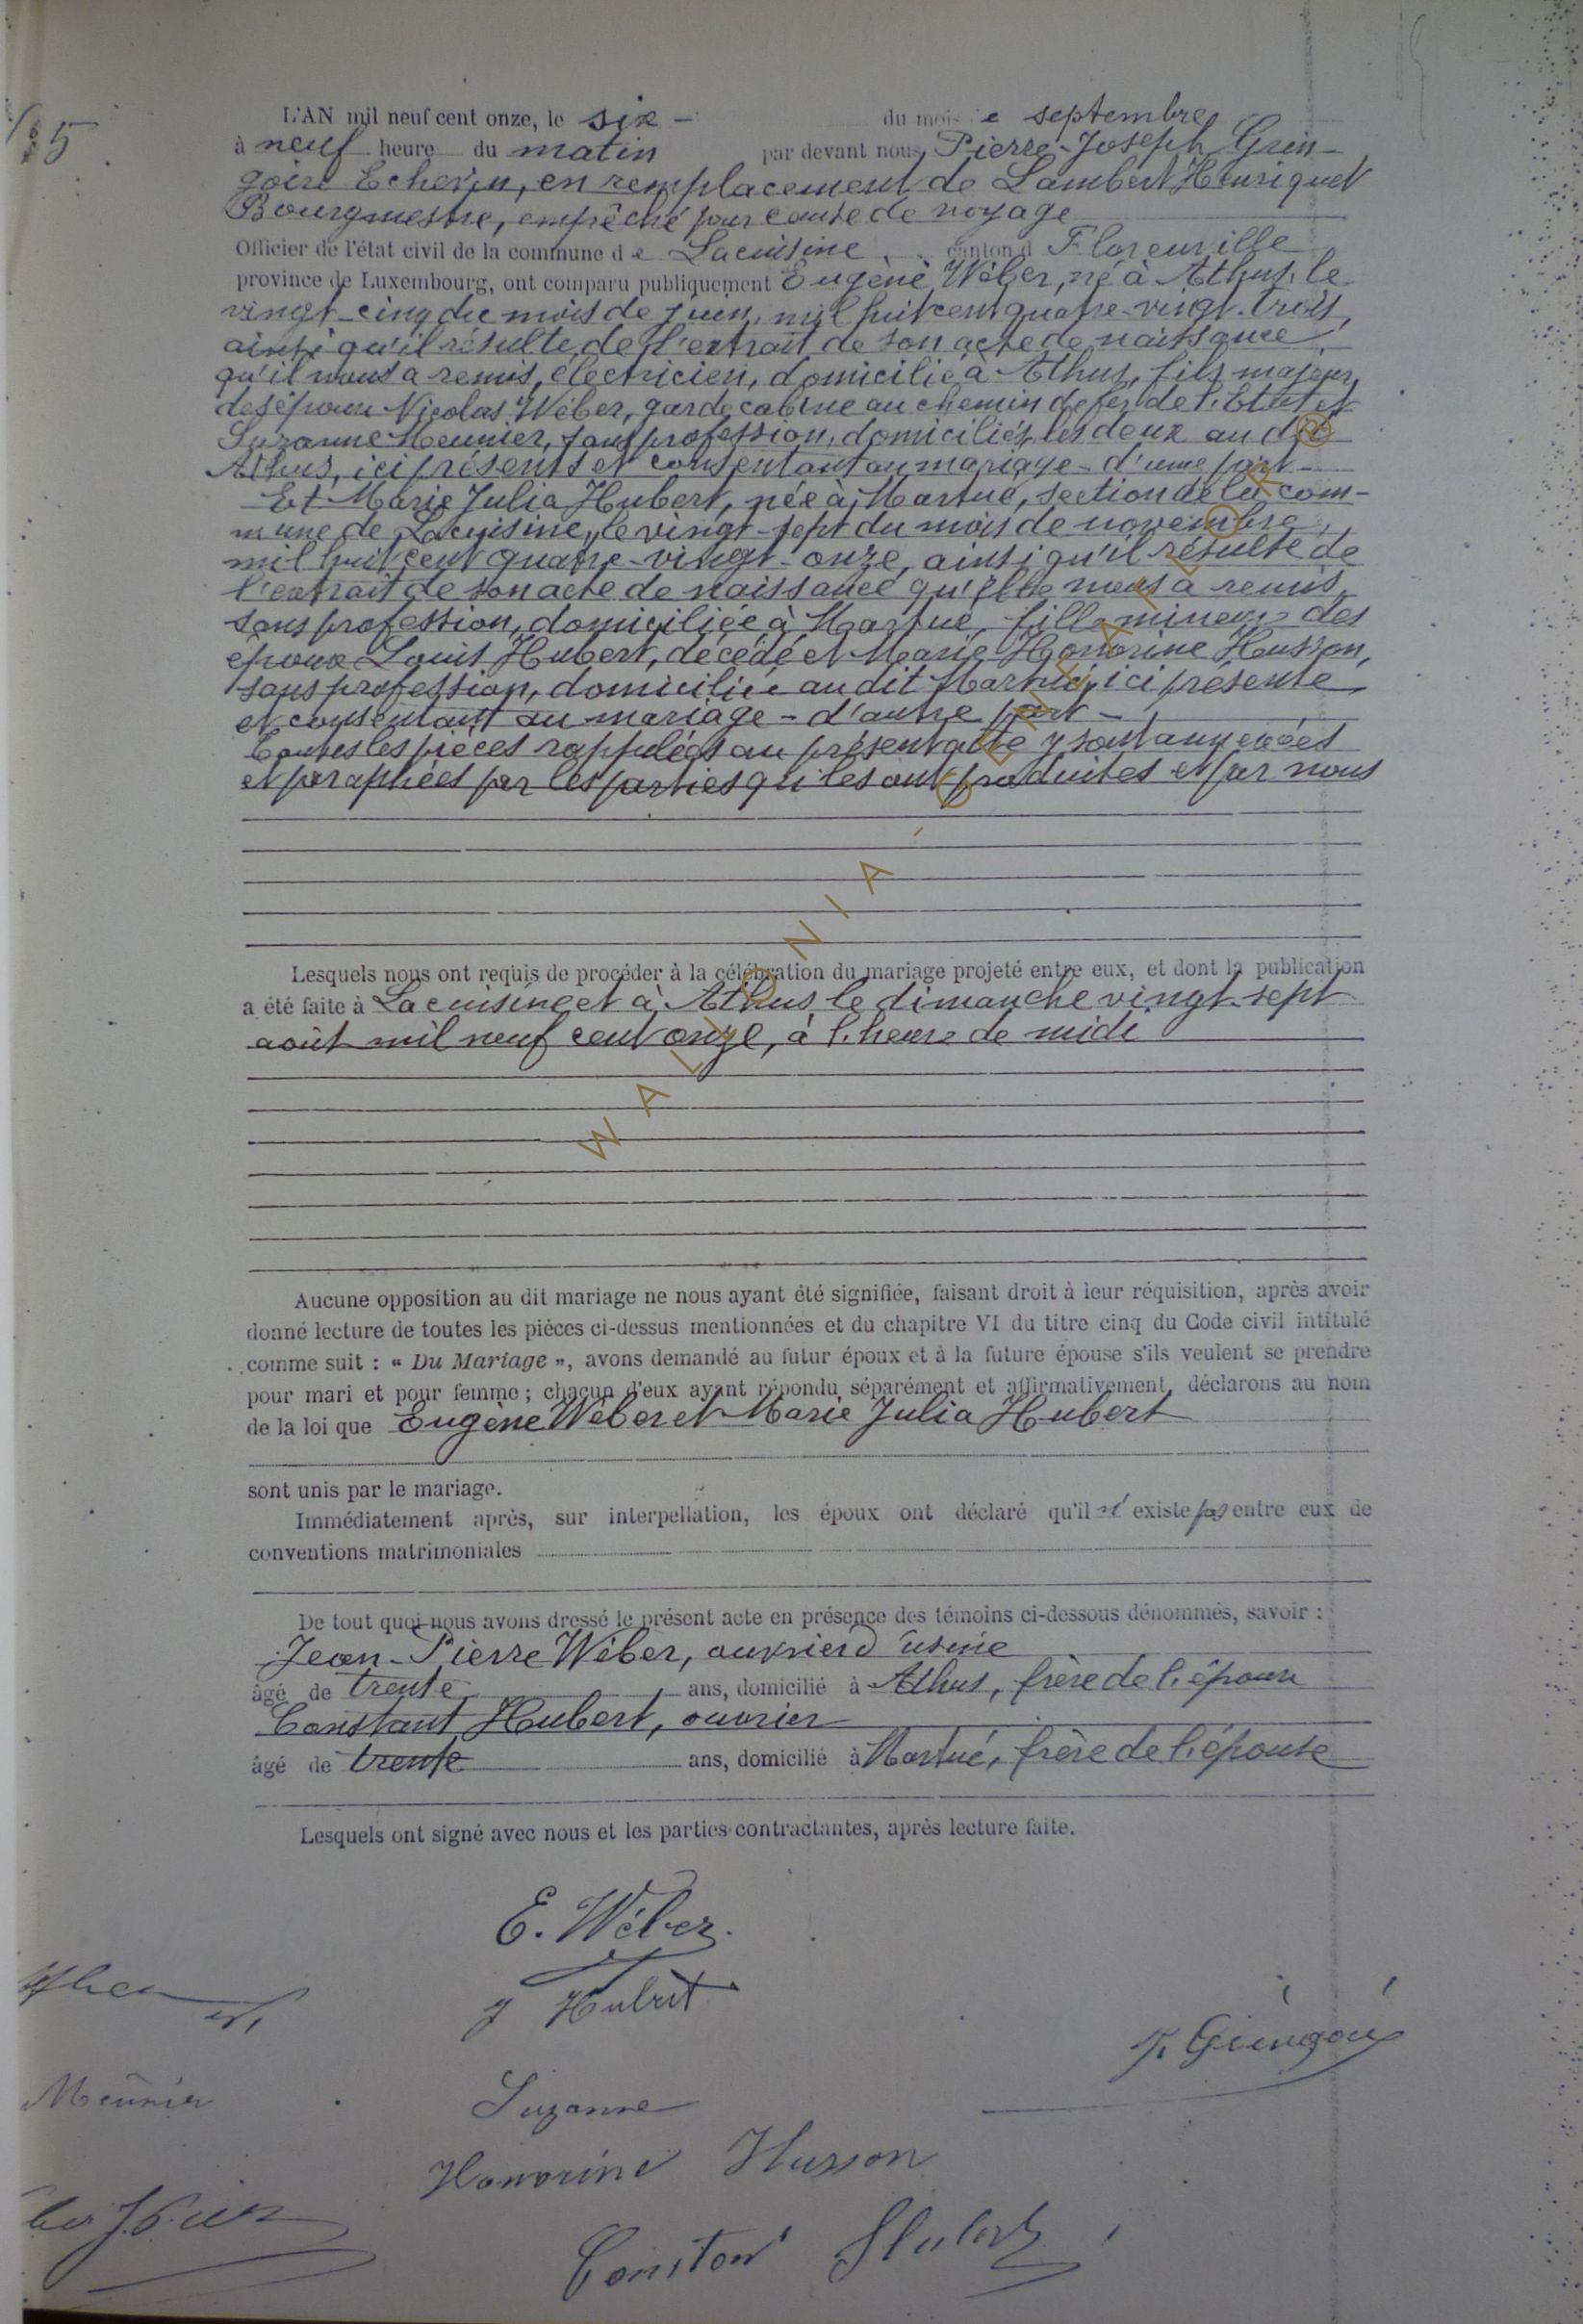 15
L'AN mil neuf cent onze, le six - du mois de septembre
à neuf heure du matin par devant nous, Pierre-Joseph Grin-
goire Echevin, en remplacement de Lambert Henriquet
Bourgmestre, empêché pour cause de voyage
Officier de l'état civil de la commune de Lacuisine canton d Florenville
province de Luxembourg, ont comparu publiquement Eugène Wéber, né à Athus, le
vingt-cinq du mois de juin, mil huit cent quatre-vingt-trois,
ainsi qu'il résulte de l'extrait de son acte de naissance
qu'il nous a remis, électricien, domicilié à Athus, fils majeur
des époux Nicolas Wéber, garde cabine au chemin de fer de l'Etat et
Suzanne Meunier, sans profession, domiciliés les deux au dit
Athus, ici présents et consentant au mariage - d'une part -
Et Marie Julia Hubert, née à Martué, section de la com-
mune de Lacuisine, le vingt-sept du mois de novembre,
mil huit cent quatre-vingt-onze, ainsi qu'il résulte de
l'extrait de son acte de naissance qu'elle nous a remis,
sans profession, domiciliée à Martué, fille mineure des
époux Louis Hubert, décédé et Marie Honorine Husson,
sans profession, domiciliée audit Martué, ici présente
et consentant au mariage - d'autre part -
Toutes les pièces rappelées au présent acte y sont annexées
et paraphées par les parties qui les ont produites et par nous
WALLONIA - GENEALOR ©
Lesquels nous ont requis de procéder à la célébration du mariage projeté entre eux, et dont la publication
a été faite à Lacuisine et à Athus le dimanche vingt-sept
août mil neuf cent onze, à l'heure de midi
Aucune opposition au dit mariage ne nous ayant été signifiée, faisant droit à leur réquisition, après avoir
donné lecture de toutes les pièces ci-dessus mentionnées et du chapitre VI du titre cinq du Code civil intitulé
comme suit : « Du Mariage », avons demandé au futur époux et à la future épouse s'ils veulent se prendre
pour mari et pour femme ; chacun d'eux ayant répondu séparément et affirmativement, déclarons au nom
de la loi que Eugène Wéber et Marie Julia Hubert
sont unis par le mariage.
Immédiatement après, sur interpellation, les époux ont déclaré qu'il n'existe pas entre eux de
conventions matrimoniales
De tout quoi nous avons dressé le présent acte en présence des témoins ci-dessous dénommés, savoir :
Jean-Pierre Wéber, ouvrier d'usine
âgé de trente ans, domicilié à Athus, frère de l'époux
Constant Hubert, ouvrier
âgé de trente ans, domicilié à Martué, frère de l'épouse
Lesquels ont signé avec nous et les parties contractantes, après lecture faite.
E. Wéber
J Hubert
J. Gringoire
Meunier Suzanne
Honorine Husson
Constant Hubert